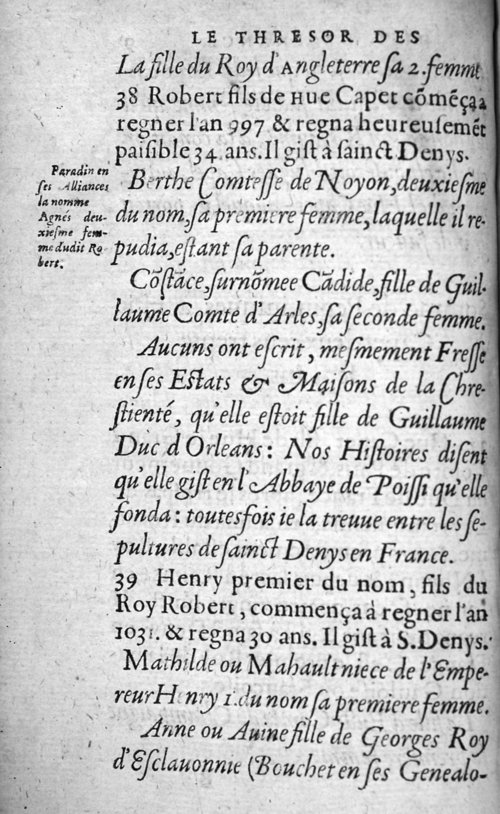 LE THRESOR DES
La fille du Roy d'Angleterre sa 2. femme
38 Robert fils de Hue Capet cõmẽça a
regner l'an 997 & regna heureusemẽt
paisible 34 ans. Il gist à sainct Denys.
Paradin en
ses Alliances
la nomme
Agnés deu-
xiesme fem-
me dudit Ro-
bert.
Berthe Comtesse de Noyon, deuxiesme
du nom, sa premiere femme, laquelle il re-
pudia, estant sa parente.
Cõstãce, surnõmee Cãdide, fille de Guil-
laume Comte d'Arles, sa seconde femme.
Aucuns ont escrit, mesmement Fresse
en ses Estats & Maisons de la Chre-
stienté, qu'elle estoit fille de Guillaume
Duc d Orleans: Nos Histoires disent
qu'elle gist en l'Abbaye de Poissi qu'elle
fonda: toutesfois ie la treuue entre les se-
pultures de sainct Denys en France.
39 Henry premier du nom, fils du
Roy Robert, commença à regner l'an
1031. & regna 30 ans. Il gist à S. Denys.
Mathilde ou Mahault niece de l'Empe-
reur Henry 1. du nom sa premiere femme.
Anne ou Auine fille de Georges Roy
d'Esclauonnie (Bouchet en ses Genealo-